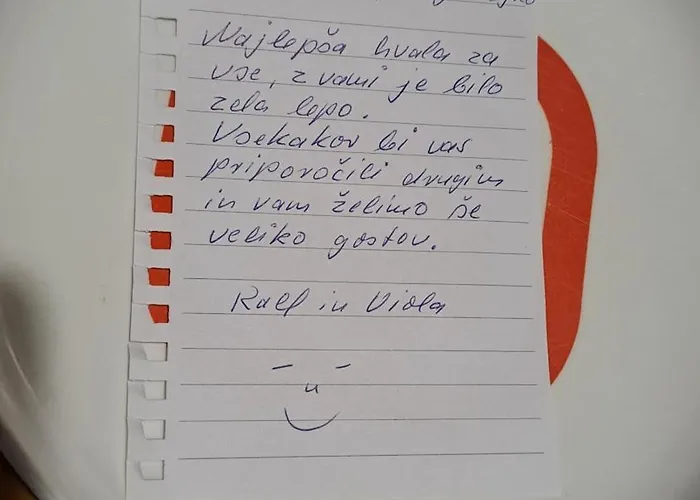 Najlepša hvala za
vse, z vami je bilo
zelo lepo.
Vsekakor bi vas
priporočili drugim
in vam želimo še
veliko gostov.
Ralf in Viola